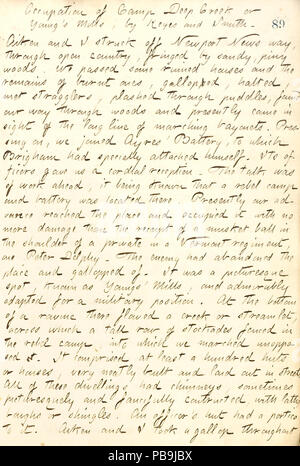 Occupation of Camp Deep Creek or
Young's Mills, by Keyes and Smith.
89
Aiken and I struck off Newport News way,
through open country, fringed by sandy, piny
woods. We passed some ruined houses and the
remains of burnt ones, galloped, halted,
met stragglers, plashed through puddles, found
our way through woods and presently came in
sight of the long line of marching bayonets. Pres
sing on, we joined Ayres' Battery, to which
Brigham had specially attached himself. Its of
ficers gave us a cordial reception. The talk was
of work ahead, it being known that a rebel camp
and battery was located there. Presently our ad
vance reached the place and occupied it with no
more damage than the receipt of a musket ball in
the shoulder of a private in a Vermont regiment,
one Peter Delphy. The enemy had abandoned the
place and galloped off. It was a picturesque
spot, known as Youngs' Mills, and admirably
adapted for a military position. At the bottom
of a ravine there flowed a creek or streamlet,
across which a tall row of stockades fenced in
the rebel camp, into which we marched unoppo
sed. It comprised at least a hundred huts
or houses, very neatly built and laid out in streets.
All of these dwellings had chimneys, sometimes
picturesquely and fancifully contructed with laths,
boughs or shingles. An officer's hut had a portico
to it. Aiken and I took a gallop throughout
alamy
Image ID: PB9JBX
www.alamy.com